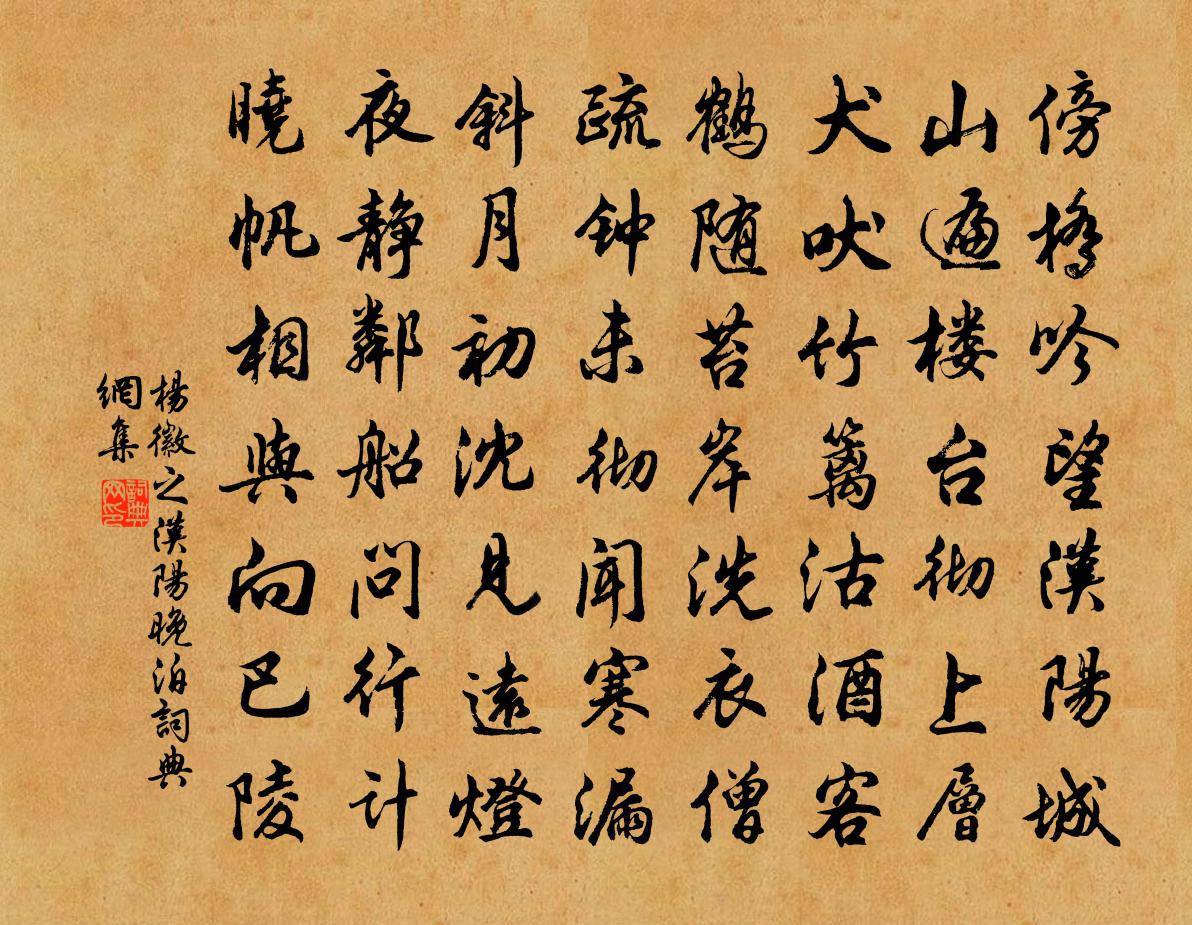 傍橋吟望漢陽城
山遍楼台彻上層
犬吠竹篱沽酒客
鶴随苔岸洗衣僧
疏钟未彻闻寒漏
斜月初沈見遠燈
夜静鄰船问行计
曉帆相與向巴陵
楊徽之漢陽晚泊詞典
網集
詞典
网印